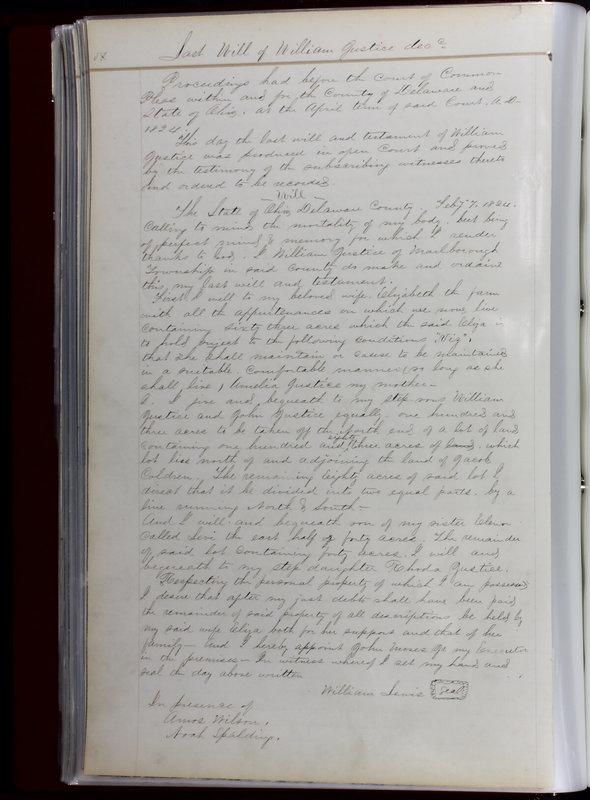 Last Will of William Gustice decd
Proceedings had before the Court of Common
Pleas within and for the County of Delaware and
State of Ohio. at the April term of said Court. A.D-
1824.
This day the last will and testament of William
Gustice was produced in open Court and proved
by the testimony of the subscribing witnesses thereto
and ordered to be recorded.
- Will -
The State of Ohio Delaware County. Feby 7. 1824.
Calling to mind the mortality of my body. but being
of perfect mind & memory for which I render
thanks to God. I William Gustice of Marlborough
Township in said County do make and ordain
this my last will and testament.
First I will to my beloved wife. Elizabeth the farm
with all the appurtenances on which we now live
containing sixty three acres which the said Eliza is
to hold subject to the following conditions "Viz".
that she shall maintain or cause to be maintained
in a suitable. comfortable manner (so long as she
shall live) Amelia Gustice my mother-
I give and bequeath to my step sons William
Gustice and John Gustice equally. one hundred and
three acres to be taken off the North end of a lot of land
containing one hundred and eighty three acres of land. which
lot lies north of and adjoining the land of Jacob
Coldren. The remaining eighty acres of said lot I
direct that it be divided into two equal parts. by a
line running North & South-
And I will and bequeath son of my sister Elenor
called Levi the east half or forty acres. The remainder
of said lot containing forty acres. I will and
bequeath to my step daughter Rhoda Gustice.
Respecting the personal property of which I am possessed
I desire that after my just debts shall have been paid
the remainder of said property of all descriptions be held by
my said wife Eliza both for her support and that of her
family- And I hereby appoint John Moses my Executor
in the premises- In witness whereof I set my hand and
seal the day above written
William Lewis Seal
In presence of
Amos Wilson.
Noah Spalding.